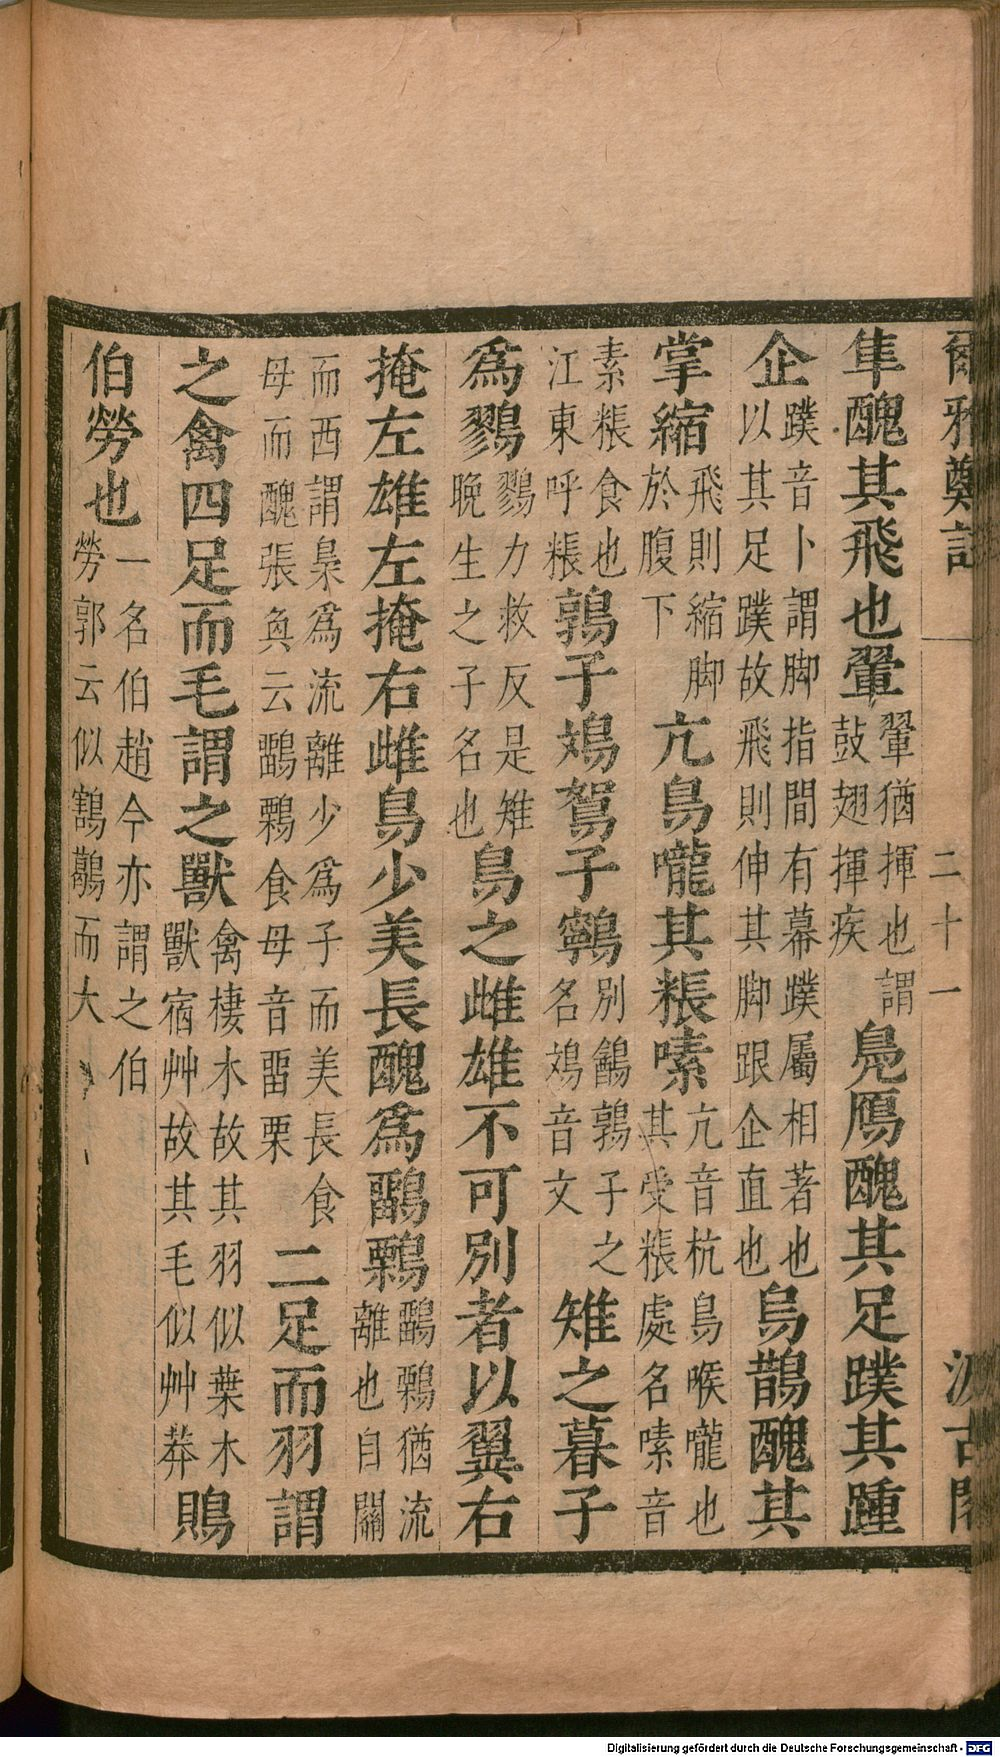 爾雅鄭註 二十一 汲古閣
隼醜其飛也翬翬猶揮也謂鼓翅揮疾鳧鴈醜其足蹼其踵
企蹼音卜謂脚指間有幕蹼屬相著也以其足蹼故飛則伸其脚跟企直也烏鵲醜其
掌縮飛則縮脚於腹下亢鳥嚨其粻嗉亢音杭鳥喉嚨也其受粻處名嗉音
素粻食也江東呼粻鶉子鳼鴽子鸋別䳺鶉子之名鳼音文雉之暮子
爲鷚鷚力救反是雉晚生之子名也鳥之雌雄不可別者以翼右
掩左雄左掩右雌鳥少美長醜爲鶹鷅鶹鷅猶流離也自關
而西謂梟爲流離少爲子而美長食母而醜張奐云鶹鷅食母音畱栗二足而羽謂
之禽四足而毛謂之獸禽棲木故其羽似葉木獸宿艸故其毛似艸莽鵙
伯勞也一名伯趙今亦謂之伯勞郭云似鶷鶡而大
Digitalisierung gefördert durch die Deutsche Forschungsgemeinschaft - DFG